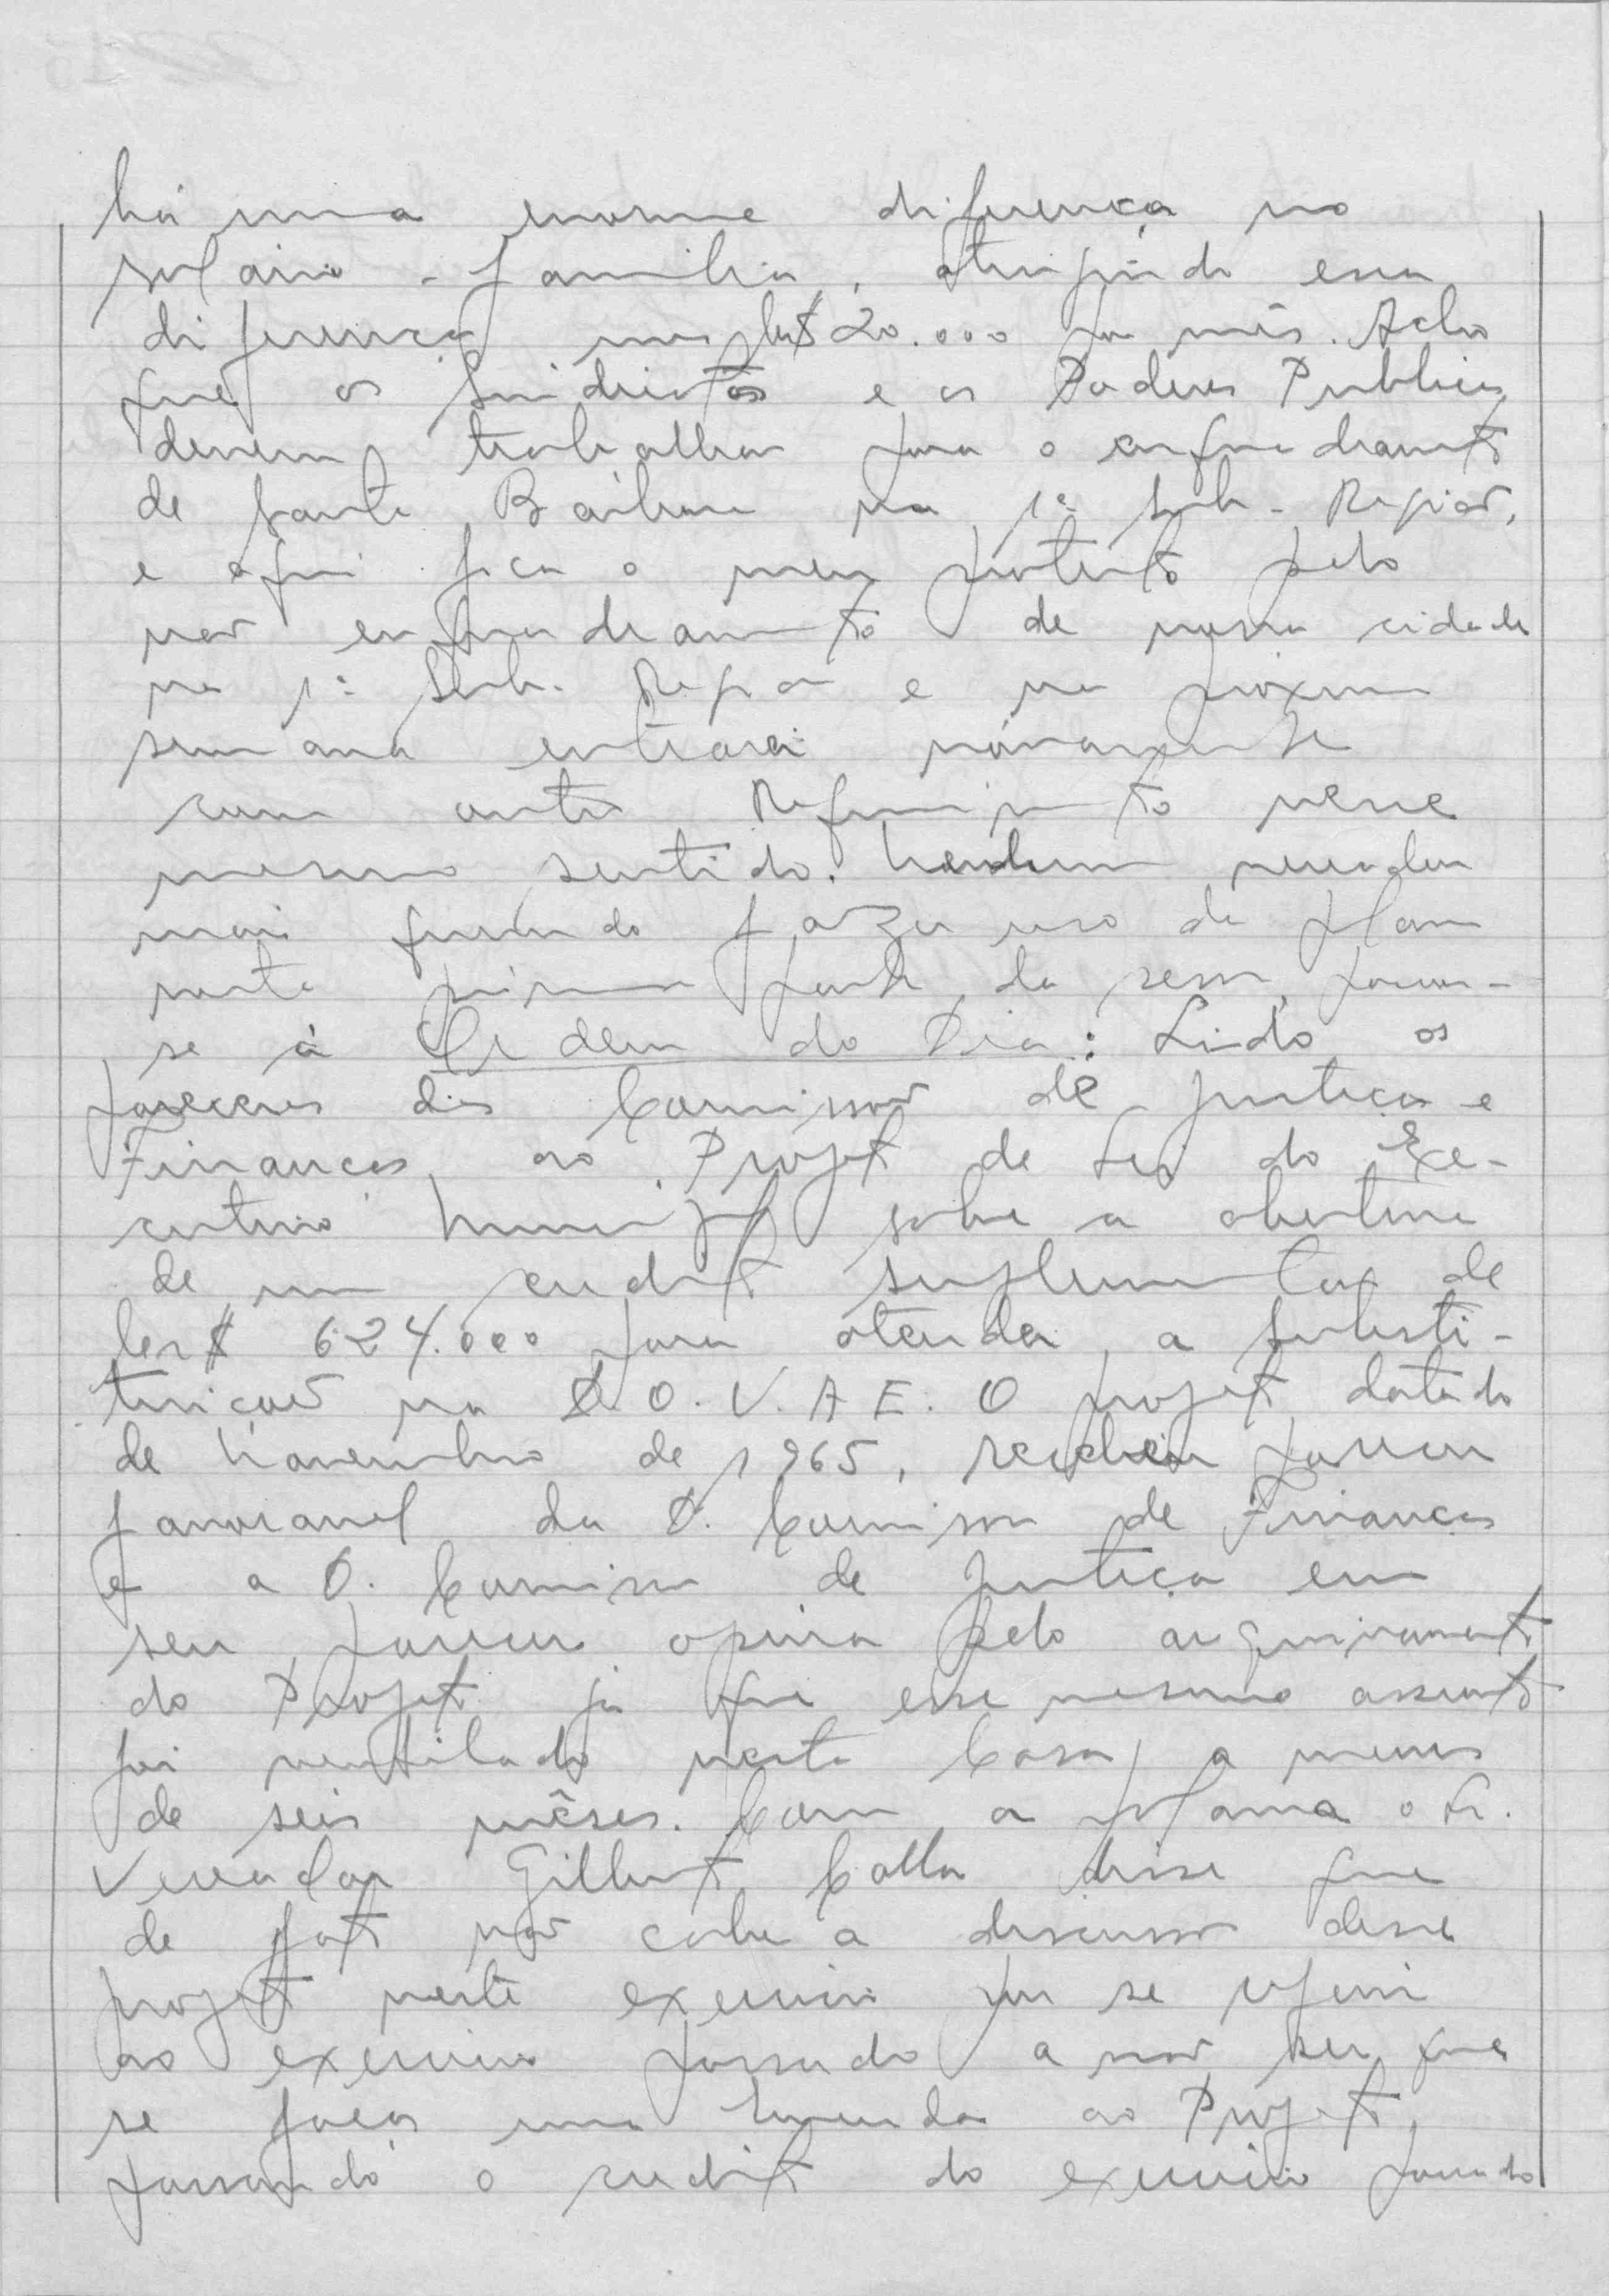 há uma enorme diferença no
salário-família, atingindo essa
diferença uns Cr$ 20.000 por mês. Acho
que os Sindicatos e os Poderes Publicos
devem trabalhar para o enquadramento
de Santa Bárbara na 1ª Sub-Região,
e aqui fica o meu protesto pelo
não enquadramento de nossa cidade
na 1ª Sub-Região e na proxima
semana entrarei nóvamente
com outro Requerimento nesse
mesmo sentido. Nenhum vereador
mais querendo fazer uso da palavra
nesta primeira parte da sessão, passou-
se à Ordem do Dia: Lido os
pareceres das Comissões de Justiça e
Finanças ao Projeto de Lei do Exe-
cutivo Municipal sobre a abertura
de um credito suplementar de
Cr$ 624.000 para atender a substi-
tuição na D.O.V.A.E. O projeto datado
de Novembro de 1965, recebeu parecer
favoravel da D. Comissão de Finanças
e a D. Comissão de Justiça em
seu parecer opina pelo arquivamento
do Projeto já que esse mesmo assunto
foi ventilado nesta Casa, a menos
de seis mêses. Com a palavra o Sr.
Vereador Gilberto Calla disse que
de fato não cabe a discussão desse
projeto neste exercicio por se referir
ao exercicio passado a não ser que
se faça uma Emenda ao Projeto,
passando o credito do exercicio passado